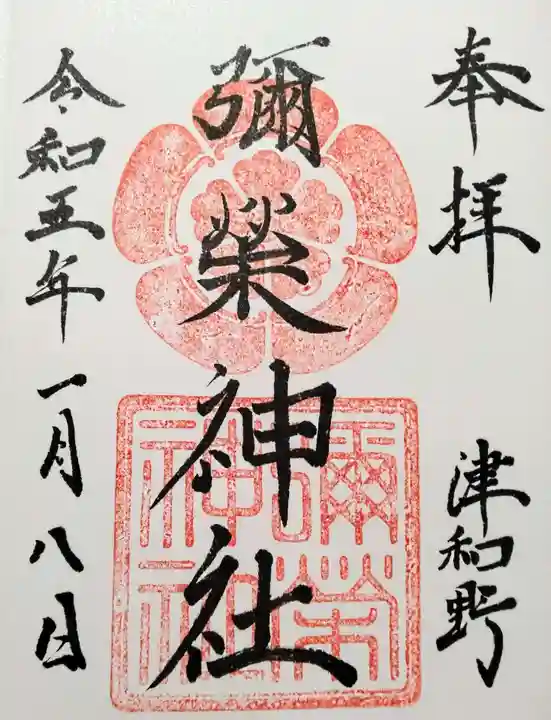 奉拝
津和野
彌榮神社
彌榮神社
令和五年一月八日